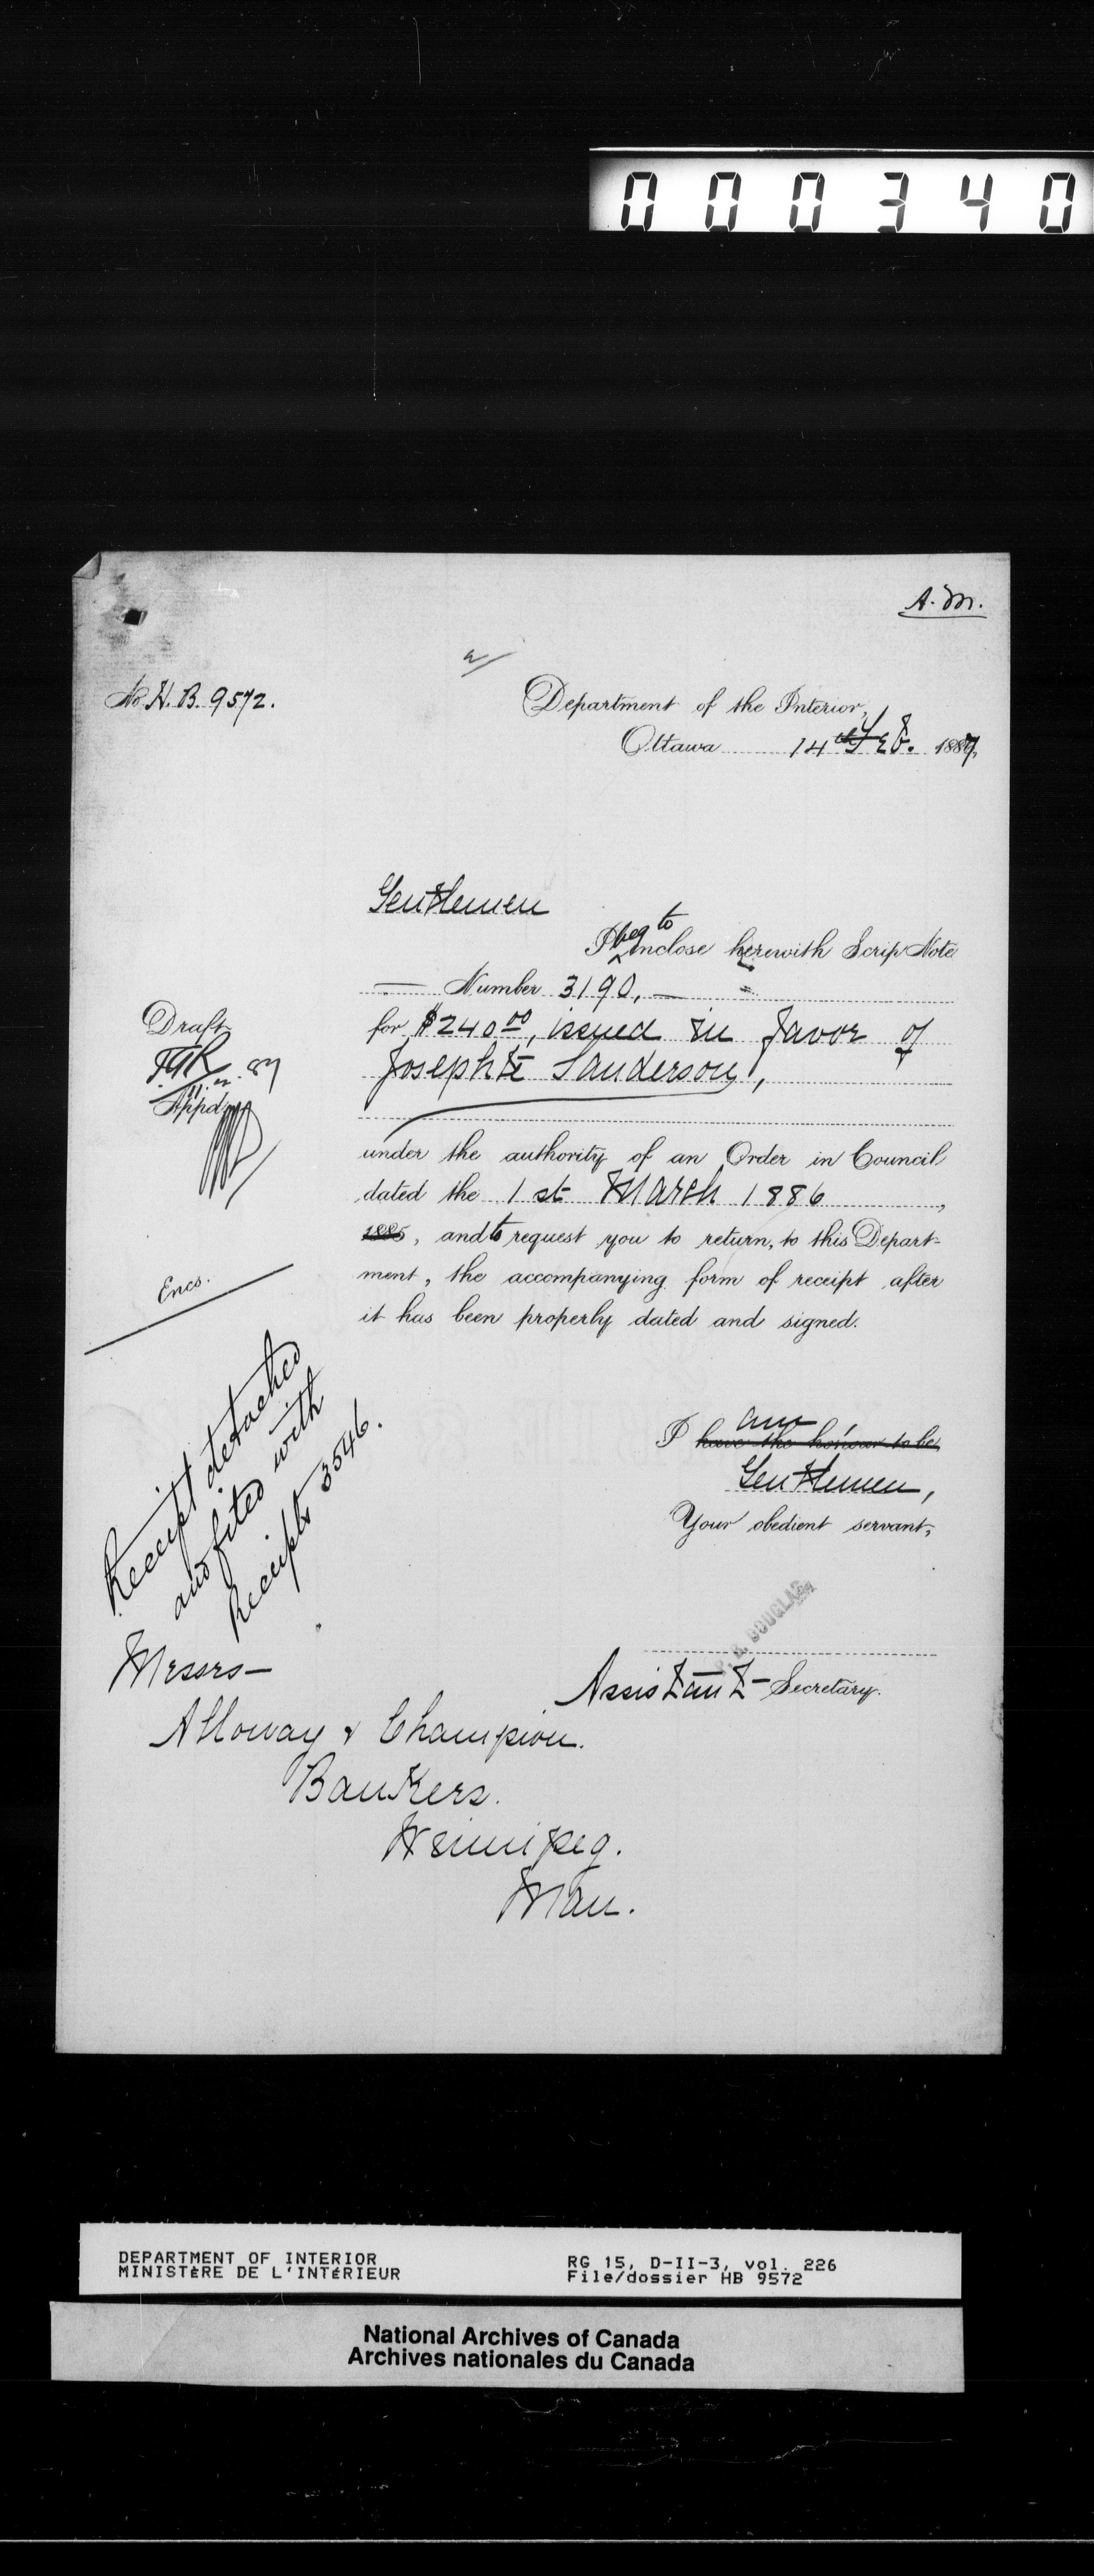 000340
A. M.
No H. B. 9572.
Department of the Interior,
Ottawa 14th Feb. 1887,
Gentlemen
I beg to inclose herewith Scrip Note
— Number 3190, —
for $240 00, issued in favor of
Josephte Sanderson,
under the authority of an Order in Council
dated the 1st March 1886,
1885, and to request you to return, to this Depart-
ment, the accompanying form of receipt after
it has been properly dated and signed.
Draft
11.2.87
Appd
Encs.
Receipt detached
and filed with
Receipts 3546.
I am have the honour to be,
Gentlemen,
Your obedient servant,
DOUGLAS
Assistant Secretary.
Messrs—
Alloway & Champion.
Bankers.
Winnipeg.
Man.
DEPARTMENT OF INTERIOR
MINISTÈRE DE L'INTÉRIEUR
RG 15, D-II-3, vol. 226
File/dossier HB 9572
National Archives of Canada
Archives nationales du Canada